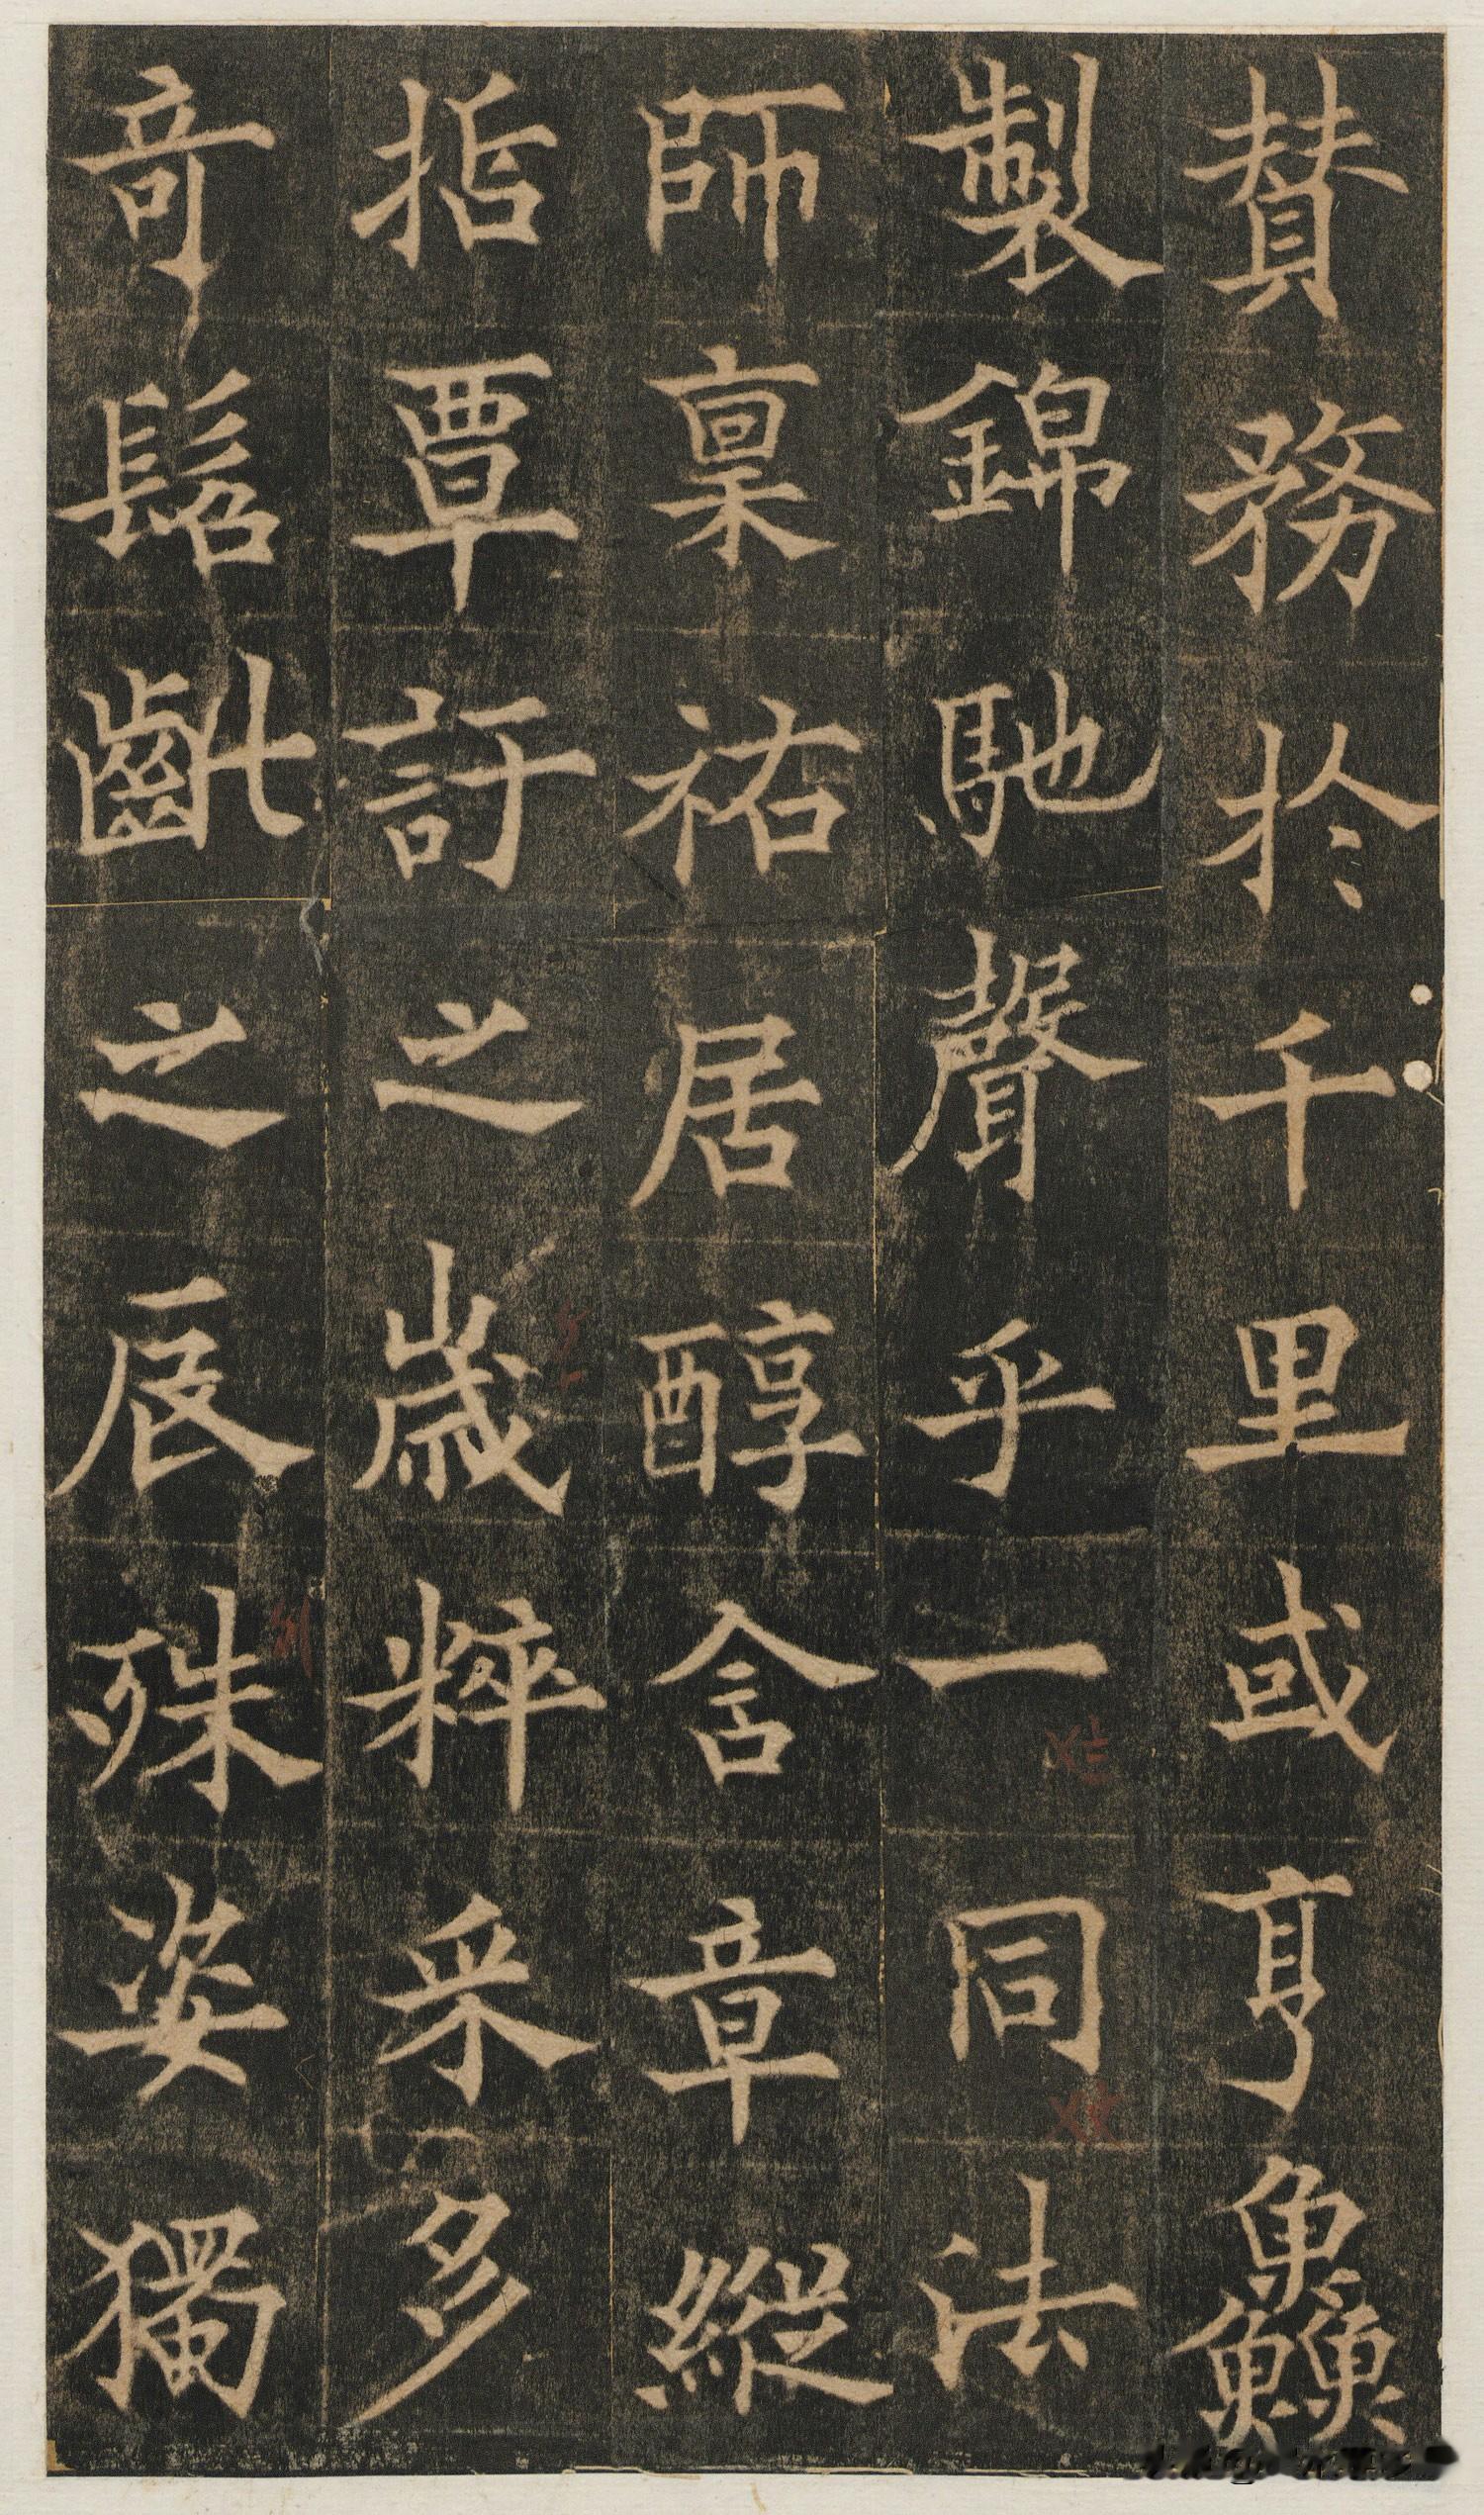 贊務於千里或亨鱻
製錦馳聲乎一同法
師稟祐居醇含章縱
指覃訏之歲粹采多
奇髫齔之辰殊姿獨